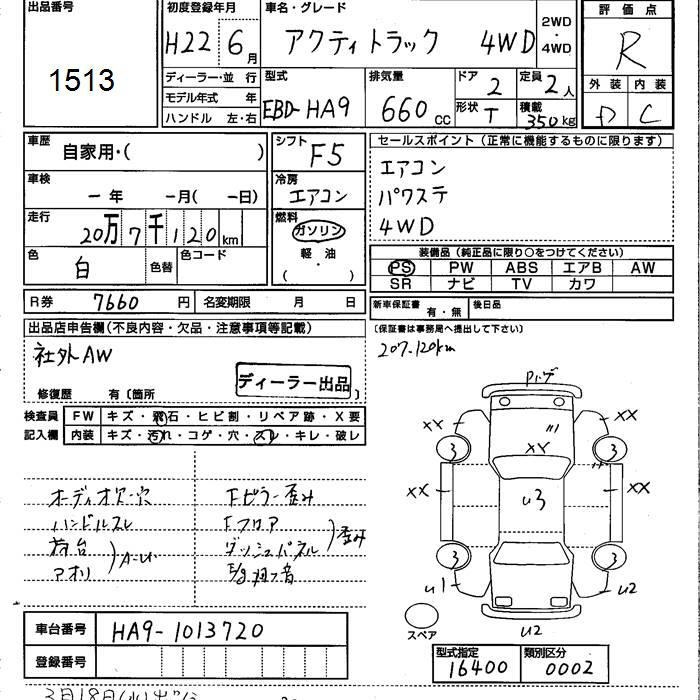 出品番号 初度登録年月 車名・グレード 2WD・4WD 評価点
1513 H22 6月 アクティトラック 4WD R
ディーラー・並 行 型式 排気量 ドア 定員 外装 内装
モデル年式 年 EBD-HA9 660cc 2 2人 D C
ハンドル 左・右 形状 T 積載 350kg
車歴 自家用・( ) シフト F5 セールスポイント(正常に機能するものに限ります)
車検 一年 一月( 一日) 冷房 エアコン エアコン
パワステ
走行 20万7千120km 燃料 ガソリン 4WD
軽・油
( ・ )
色 白 色替 色コード 装備品(純正品に限り○をつけてください)
PS PW ABS エアB AW
SR ナビ TV カワ
R券 7660円 名変期限 月 日 新車保証書 有・無 後日品
出品店申告欄(不良内容・欠品・注意事項等記載) (保証書は事務局へ提出して下さい)
社外AW 207.120km
ディーラー出品
修復歴 有〔箇所 〕
検査員 FW キズ・飛石・ヒビ割・リペア跡・X要
記入欄 内装 キズ・汚れ・コゲ・穴・スレ・キレ・破レ
オーディオ欠・穴 Fピラー歪み
ハンドルスレ Fフロア
荷台 ダッシュパネル 歪み
アオリ A-U
XX XX
3 XX 3
XX U3 XX
3 3
U1 U2
スペア U2
車台番号 HA9-1013720
登録番号
型式指定 類別区分
16400 0002